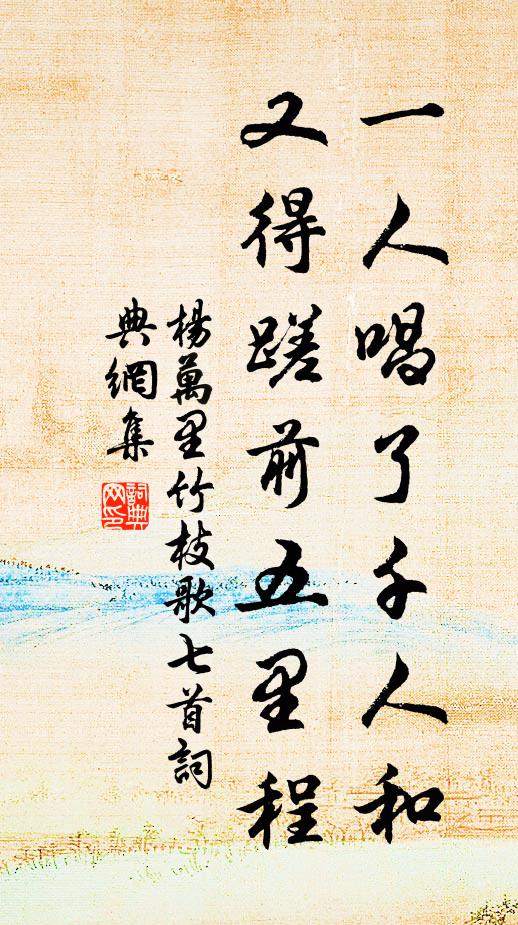 一人唱了千人和
又得蹉前五里程
楊萬里竹枝歌七首詞
典網集
詞典
网印